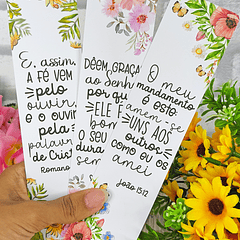 E, assim,
A FÉ VEM
pelo
ouvir,
e o ouvi
pela
palavra
de Cris
Romano
DÊEM, GRAÇA
ao Senh
por qu
ELE É
bo
o seu
dura
ser
O meu
mandamento
é este:
Amem-se
UNS AOS
outros
como eu os
amei
João 15:12